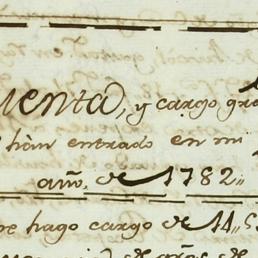 uenta, y cargo gra
han entrado en mi
año, de 1782,,
me hago cargo de 14,,